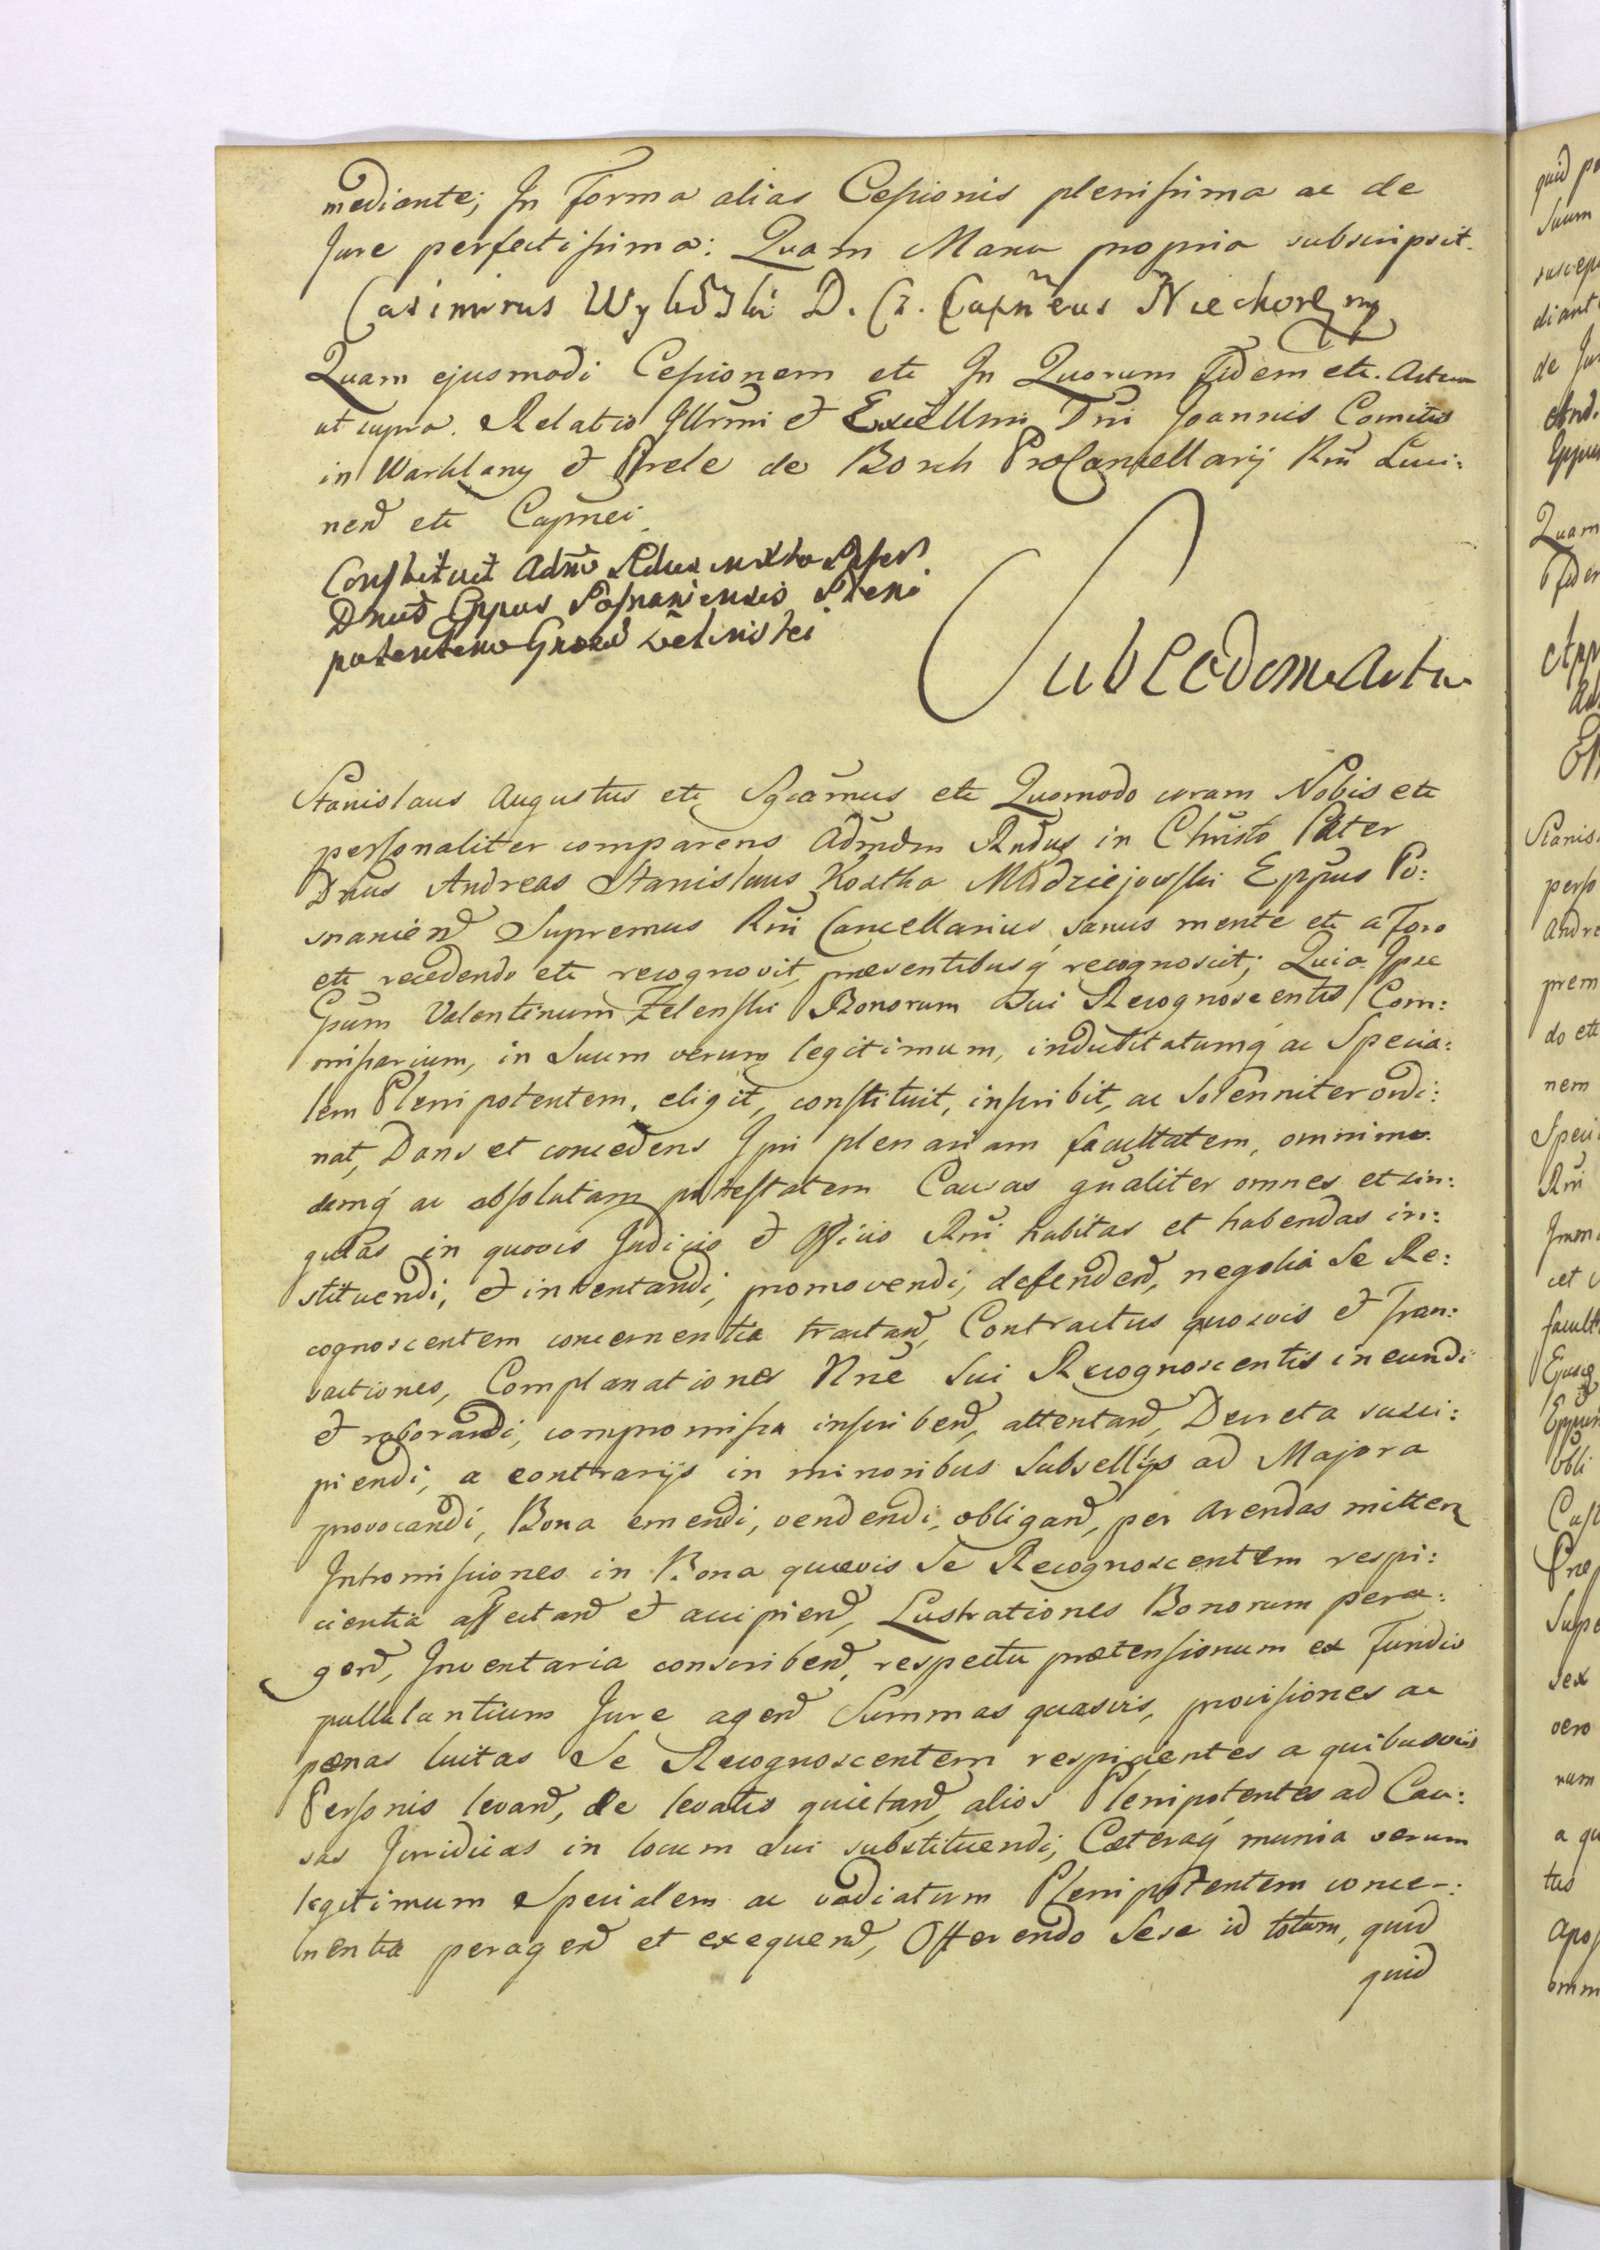 mediante; In Forma alias Cessionis plenissima ac de
Jure perfectissima: Quam Manu propria subscripsit.
Casimirus D. Cz. Capneus mp
Quam ejusmodi Cessionem etc In Quorum Fidem etc. Actum
ut supra. Relatio Illrmi et Excellmi Dni Joannis Comitis
in Warklany et Prele de Borch ProCancellarij Rni Livi:
nend etc Capnei
Constituit Adm Rdus in Xto Pater
Dnus Eppus Posnaniensis Pleni
potentem Gnosd Zelinski
Sub Eadem Actu
Stanislaus Augustus etc Sgcamus etc Quomodo coram Nobis etc
personaliter comparens Admdm Rndus in Christo Pater
Dnus Andreas Stanislaus Kostka Młodziejowski Eppus Po:
snaniend Supremus Rni Cancellarius, sanus mente etc a Foro
etc recedendo etc recognovit, praesentibusq recognoscit; Quia Ipse
Gsum Valentinum Zelenski Bonorum Sui Recognoscentis Com:
missarium, in Suum verum legitimum, indubitatumq ac Specia:
lem Plenipotentem, eligit, constituit, inscribit, ac Solenniter ordi:
nat, Dans et concedens Ipsi plenariam facultatem, omnimo
damq ac absolutam potestatem Causas gnaliter omnes et sin:
gulas in quovis Judicio et Officio Rni habitas et habendas in:
stituendi, et intentandi, promovendi, defendend, negotia Se Re:
cognoscentem concernentia tractand, Contractus quosvis et Tran:
sactiones, Complanationes Nne Sui Recognoscentis ineundi
et roborandi, compromissa inscribend, attentand, Decreta susci:
piendi, a contrarijs in minoribus Subsellijs ad Majora
provocandi, Bona emendi, vendendi, obligand, per Arendas mitten
Intromissiones in Bona quaevis Se Recognoscentem respi:
cientia affectand et accipiend, Lustrationes Bonorum pera:
gend, Inventaria conscribend, respectu praetensionum ex Fundis
pullulantium Jure agend Summas quasvis, provisiones ac
paenas luitas Se Recognoscentem respicientes a quibusvis
Personis levand, de levatis quietand, alios Plenipotentes ad Cau:
sas Juridicas in locum Sui substituendi, Caeteraq munia verum
legitimum Specialem ac vadiatum Plenipotentem conce-:
nentia peragend et exequend, Offerendo Sese id totum, quid
quid